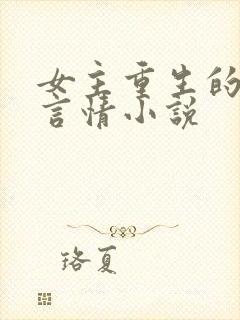 女主重生的
言情小说
珞夏